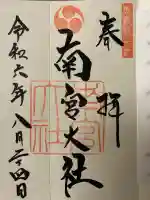 奉拝
南宮大社
令和六年八月二十四日